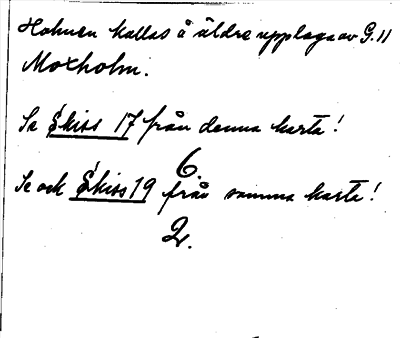 Holmen kallas å äldre upplaga av G. 11
Moxholm.
Se Skiss 17 från denna karta!
6.
Se ock Skiss 19 från samma karta!
2.